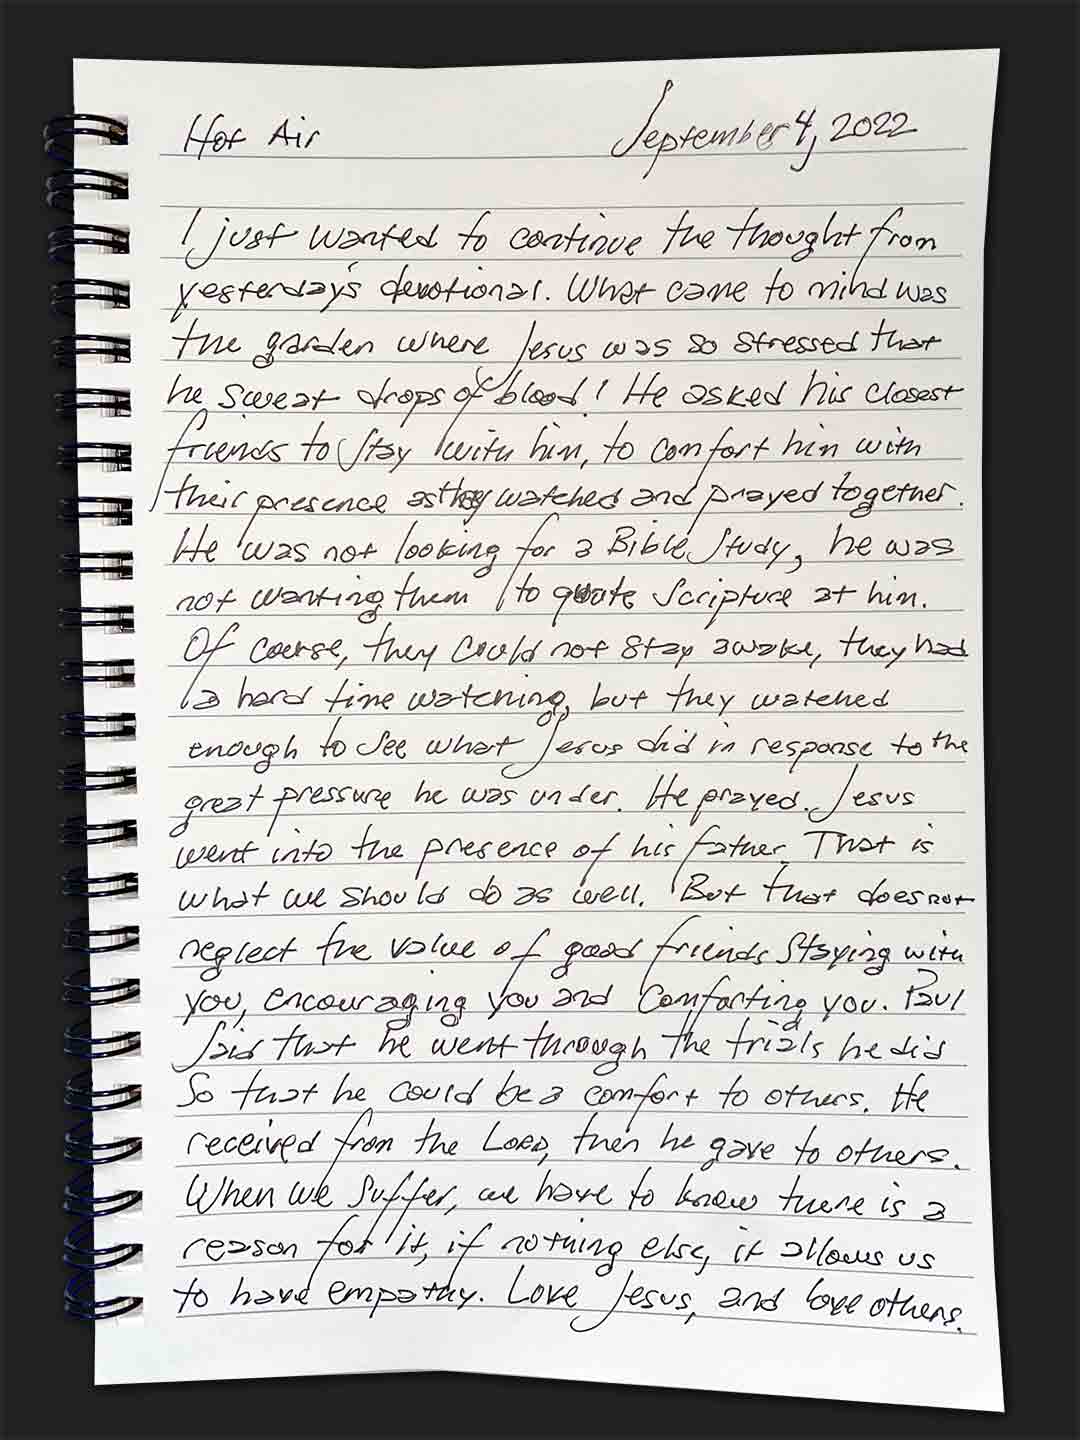 Hot Air September 4, 2022
I just wanted to continue the thought from
yesterday's devotional. What came to mind was
the garden where Jesus was so stressed that
he sweat drops of blood! He asked his closest
friends to stay with him, to comfort him with
their presence as they watched and prayed together.
He was not looking for a Bible Study, he was
not wanting them to quote Scripture at him.
Of course, they could not stay awake, they had
a hard time watching, but they watched
enough to see what Jesus did in response to the
great pressure he was under. He prayed. Jesus
went into the presence of his father. That is
what we should do as well. But that does not
neglect the value of good friends staying with
you, encouraging you and comforting you. Paul
said that he went through the trials he did
so that he could be a comfort to others. He
received from the LORD, then he gave to others.
When we suffer, we have to know there is a
reason for it, if nothing else, it allows us
to have empathy. Love Jesus, and love others.